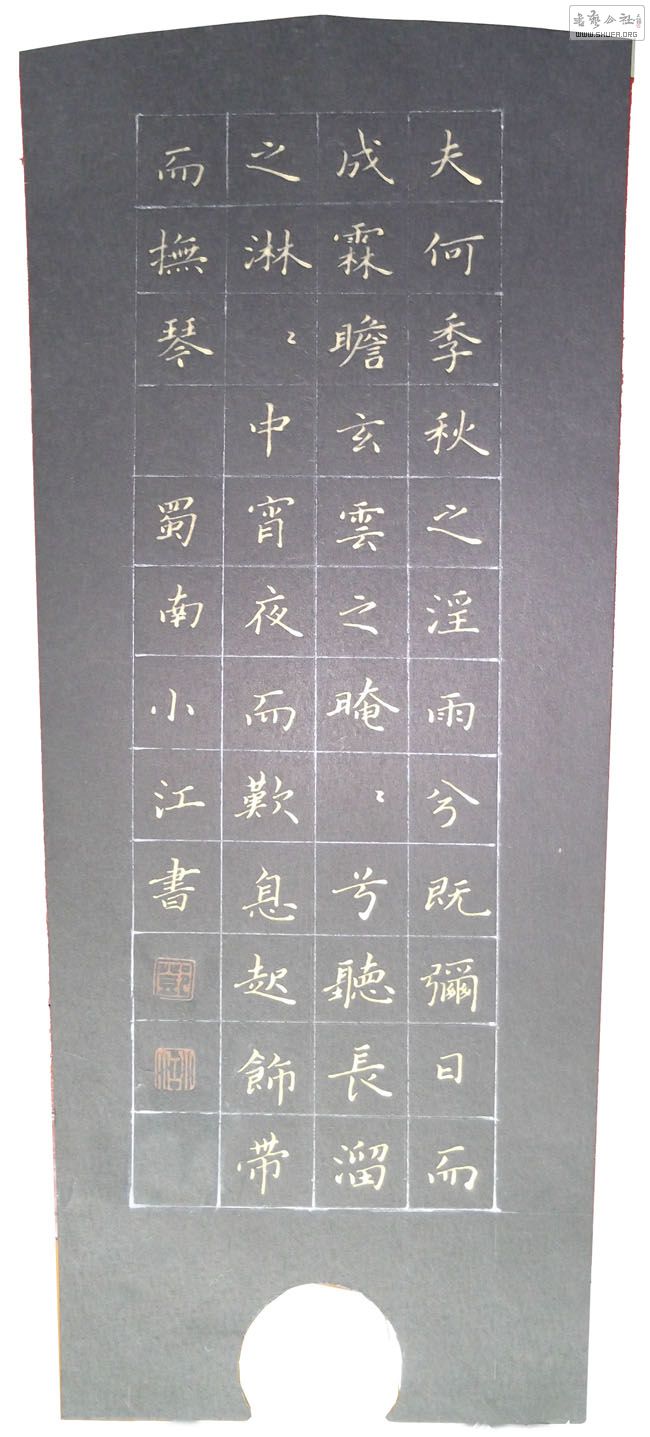 夫何季秋之淫雨兮既彌日而
成霖瞻玄雲之晻〻兮聽長溜
之淋〻中宵夜而歎息起飾帶
而撫琴 蜀南小江書
WWW.SHUFA.ORG